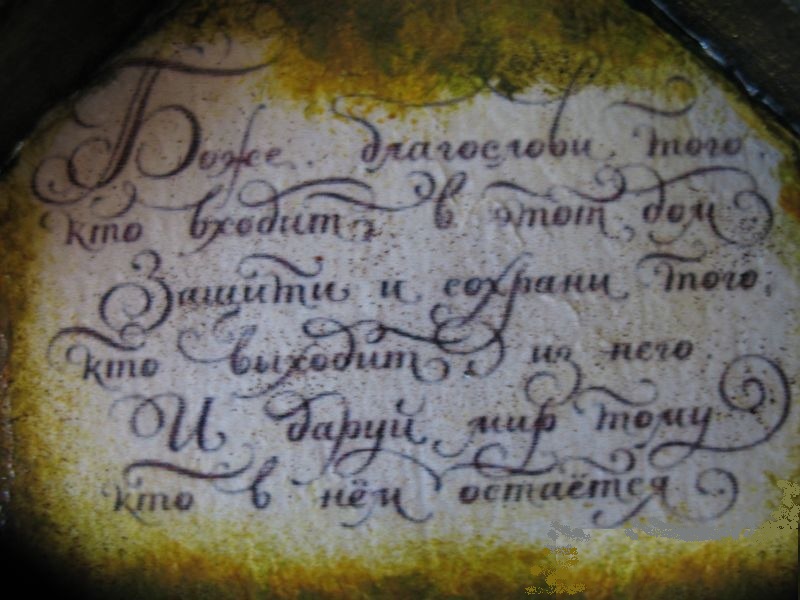 Боже благослови того
кто входит в этот дом
Защити и сохрани того,
кто выходит из него
И даруй мир тому
кто в нём остаётся